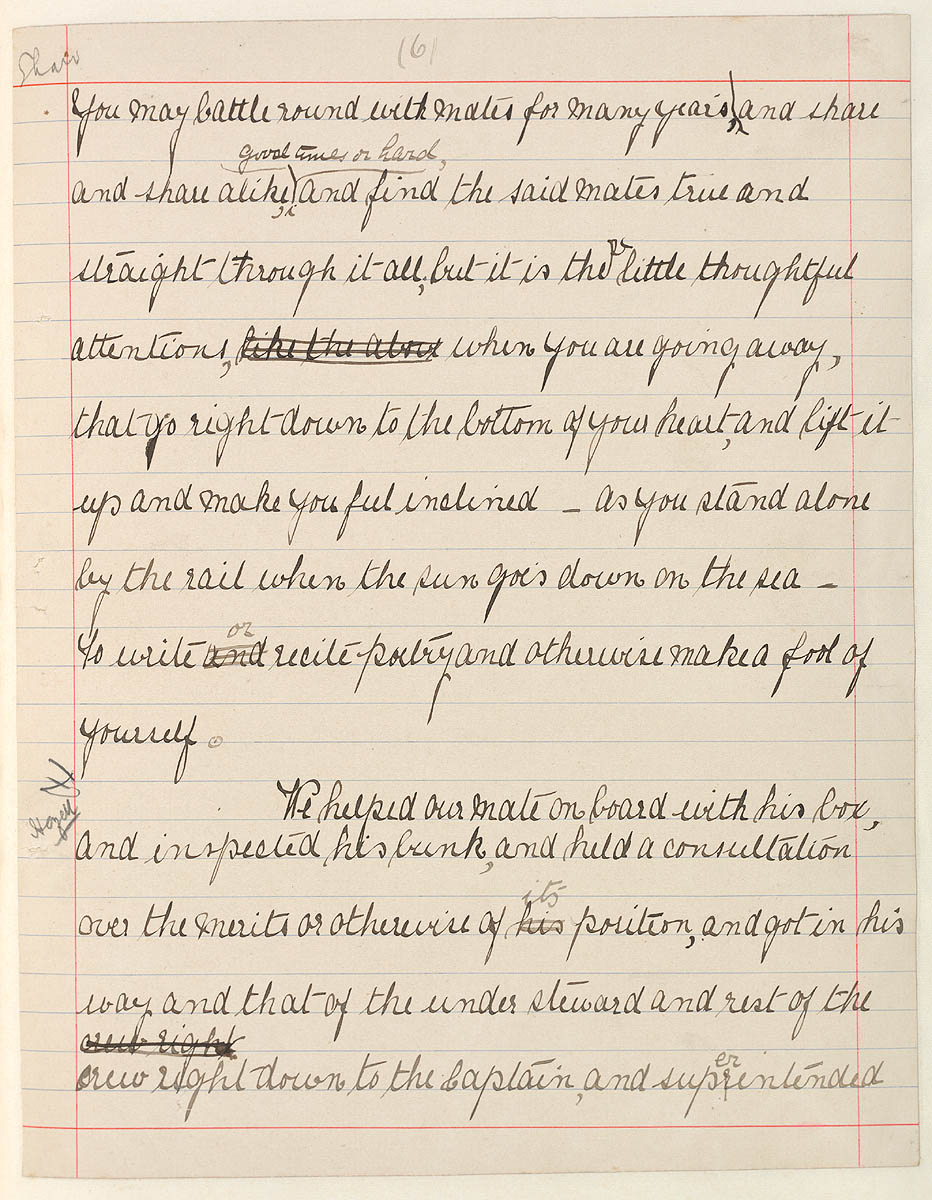 (6)
You may battle round with mates for many years, and share
good times or hard,
and share alike, and find the said mates true and
straight through it all, but it is the little thoughtful
attentions, like the above when you are going away,
that go right down to the bottom of your heart, and lift it
up and make you feel inclined — as you stand alone
by the rail when the sun goes down on the sea —
or
to write and recite poetry and otherwise make a fool of
yourself.
We helped our mate on board with his box,
and inspected his bunk, and held a consultation
its
over the merits or otherwise of his position, and got in his
way and that of the under steward and rest of the
crew right
er
crew right down to the Captain, and suprintended